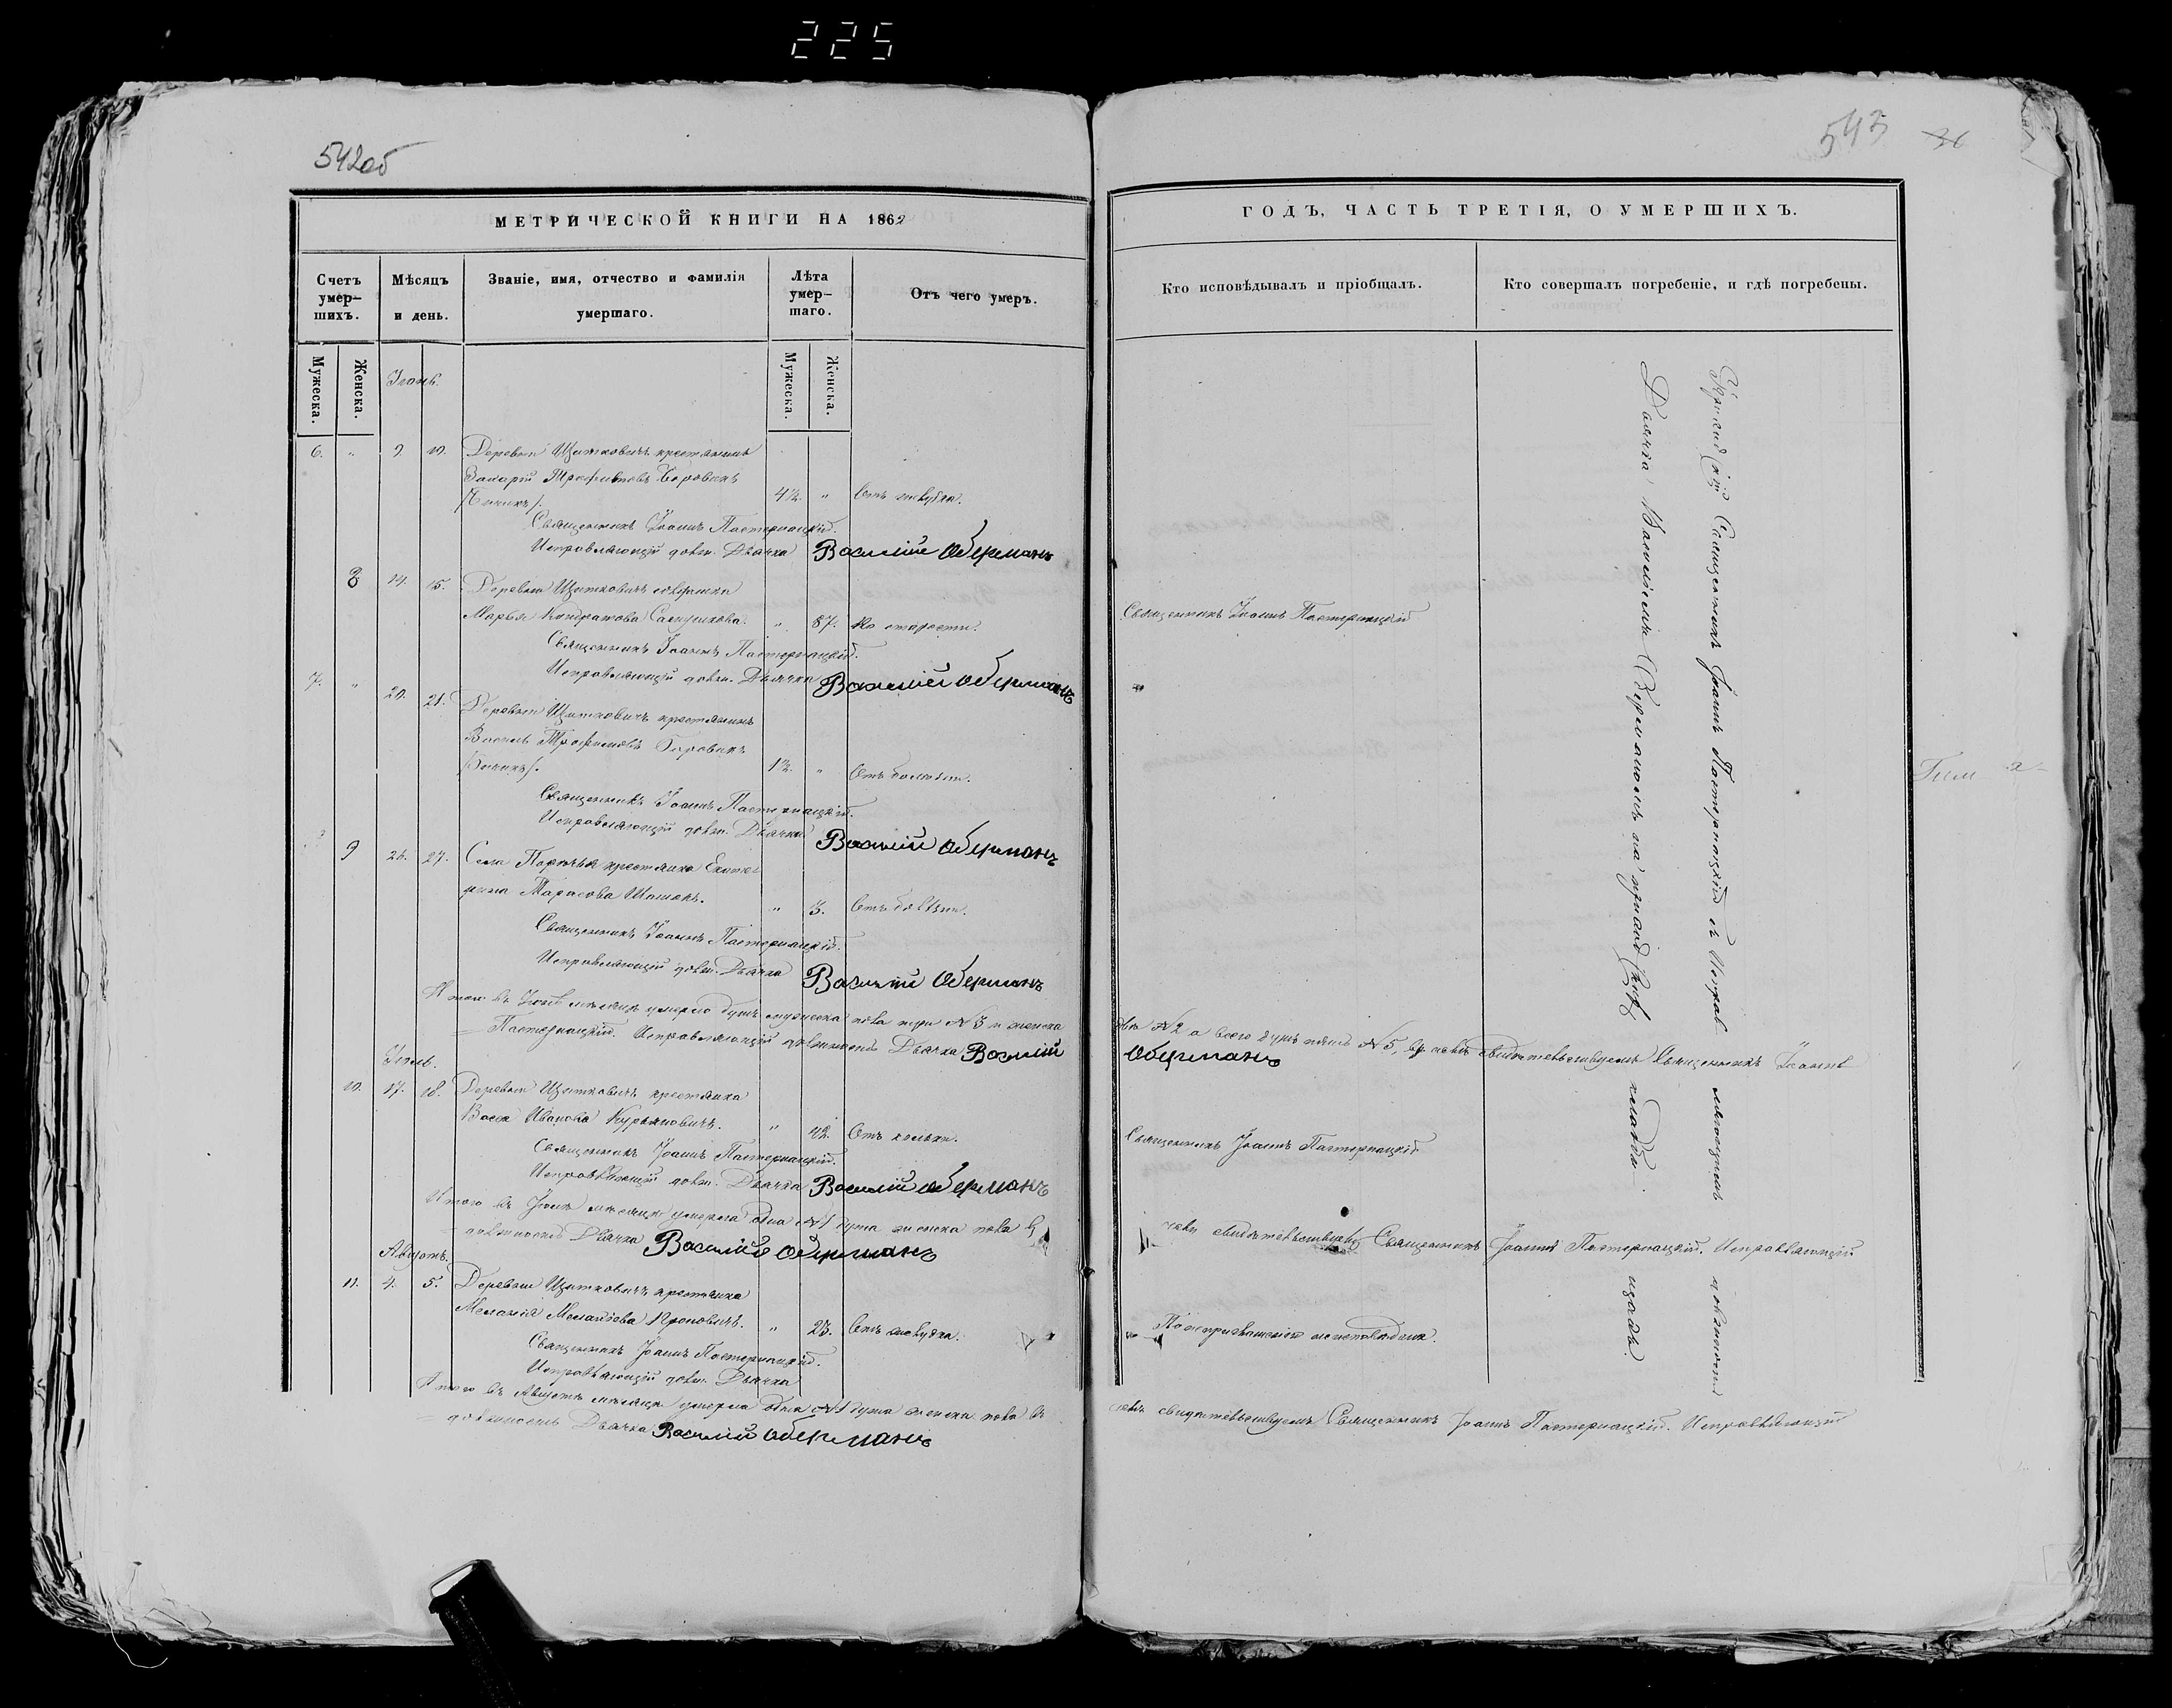 225
542об
МЕТРИЧЕСКОЙ КНИГИ НА 1862
Счетъ умер-шихъ.
Мѣсяцъ и день.
Званіе, имя, отчество и фамилія умершаго.
Лѣта умер-шаго.
Отъ чего умеръ.
Мужеска.
Женска.
Мужеска.
Женска.
Іюнь.
6. „ 9. 10. Деревни Щитковичъ крестьянинъ
Захарій Трофимовъ Боровикъ
4½. „
Священникъ Іоаннъ Пастернацкій.
Исправляющій долж. Дьячка Василій Оберманъ
8 14. 15. Деревни Щитковичъ
Марья Кондратова „ 87. По старости.
Священникъ Іоаннъ Пастернацкій.
Исправляющій долж. Дьячка Василій Оберманъ
7. „ 20. 21. Деревни Щитковичъ крестьянинъ
Василь Трофимовъ Боровикъ
1½. „ Отъ болѣзни.
Священникъ Іоаннъ Пастернацкій.
Исправляющій долж. Дьячка Василій Оберманъ
9 26. 27. Села Поречья крестьянка Екате-
рина Тарасова „ 3. Отъ болѣзни.
Священникъ Іоаннъ Пастернацкій.
Исправляющій долж. Дьячка Василій Оберманъ
Итого въ Іюнѣ мѣсяцѣ умерло душъ мужеска пола три № 3 и женска
Пастернацкій. Исправляющій должность Дьячка Василій
Іюль.
10. 17. 18. Деревни Щитковичъ крестьянка
Васса Иванова Курьяновичъ. „ 42. Отъ
Священникъ Іоаннъ Пастернацкій.
Исправляющій долж. Дьячка Василій Оберманъ
Итого въ Іюлѣ мѣсяцѣ умерла одна № 1 душа женска пола
должность Дьячка Василій Оберманъ
Августъ.
11. 4. 5. Деревни Щитковичъ крестьянка
Меланія „ 23.
Священникъ Іоаннъ Пастернацкій.
Исправляющій долж. Дьячка
Итого въ Августѣ мѣсяцѣ умерла одна № 1 душа женска пола въ
должность Дьячка Василій Оберманъ
543
36
ГОДЪ, ЧАСТЬ ТРЕТІЯ, О УМЕРШИХЪ.
Кто исповѣдывалъ и пріобщалъ.
Кто совершалъ погребеніе, и гдѣ погребены.
Священникъ Іоаннъ Пастернацкій
двѣ № 2 а всего душъ пять № 5, въ чемъ свидѣтельствуемъ Священникъ Іоаннъ
Оберманъ
Священникъ Іоаннъ Пастернацкій
чемъ свидѣтельствуемъ Священникъ Іоаннъ Пастернацкій. Исправляющій
чемъ свидѣтельствуемъ Священникъ Іоаннъ Пастернацкій. Исправляющій
Приходскій Священникъ Іоаннъ Пастернацкій съ Исправляющимъ должность
Дьячка Василіемъ Оберманомъ на приходскомъ кладбищѣ.